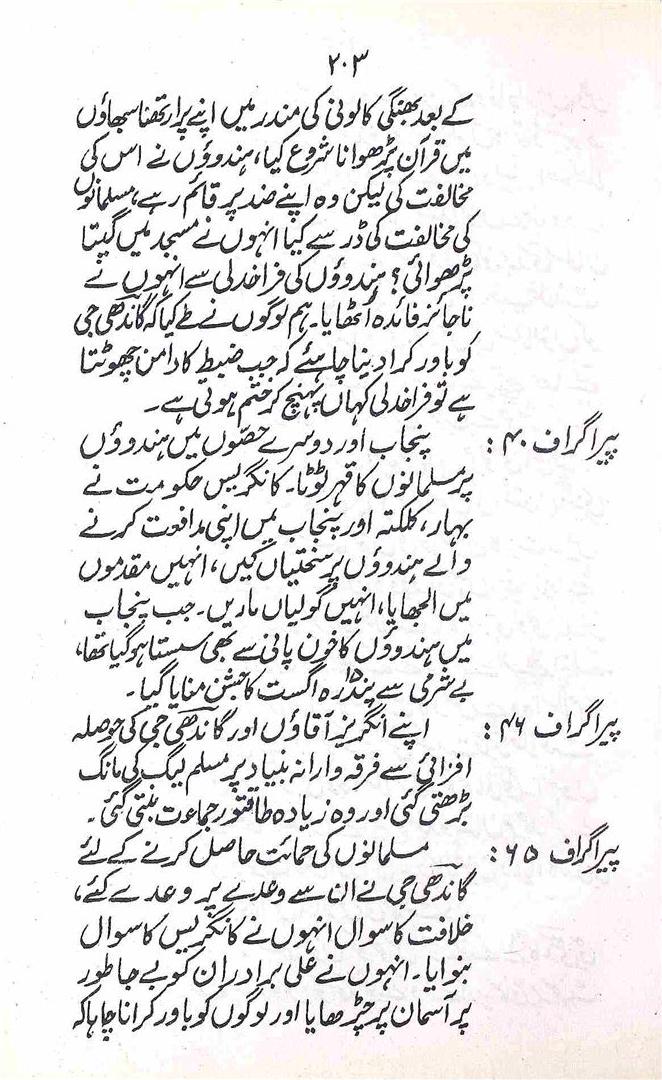 ۲۰۳
کے بعد بھنگی کالونی کی مندر میں اپنے پرارتھنا سبھاؤں
میں قرآن پڑھوانا شروع کیا، ہندوؤں نے اس کی
مخالفت کی لیکن وہ اپنے ضد پر قائم رہے، مسلمانوں
کی مخالفت کی ڈر سے کیا انہوں نے مسجد میں گیتا
پڑھوائی؟ ہندوؤں کی فراخدلی سے انہوں نے
ناجائز فائدہ اُٹھایا۔ ہم لوگوں نے طے کیا کہ گاندھی جی
کو باور کرا دینا چاہئے کہ جب ضبط کا دامن چھوٹتا
ہے تو فراخدلی کہاں پہنچ کر ختم ہوتی ہے۔
پیراگراف ۴۰: پنجاب اور دوسرے حصّوں میں ہندوؤں
پر مسلمانوں کا قہر ٹوٹا۔ کانگریس حکومت نے
بہار، کلکتہ اور پنجاب میں اپنی مدافعت کرنے
والے ہندوؤں پر سختیاں کیں، انہیں مقدموں
میں الجھایا، انہیں گولیاں ماریں۔ جب پنجاب
میں ہندوؤں کا خون پانی سے بھی سستا ہو گیا تھا،
بے شرمی سے پندرہ ۱۵ اگست کا جشن منایا گیا۔
پیراگراف ۴۶: اپنے انگریز آقاؤں اور گاندھی جی کی حوصلہ
افزائی سے فرقہ وارانہ بنیاد پر مسلم لیگ کی مانگ
بڑھتی گئی اور وہ زیادہ طاقتور جماعت بنتی گئی۔
پیراگراف ۶۵: مسلمانوں کی حمائت حاصل کرنے کے لئے
گاندھی جی نے ان سے وعدے پر وعدے کئے،
خلافت کا سوال انہوں نے کانگریس کا سوال
بنوایا۔ انہوں نے علی برادران کو بے جا طور
پر آسمان پر چڑھایا اور لوگوں کو باور کرانا چاہا کہ